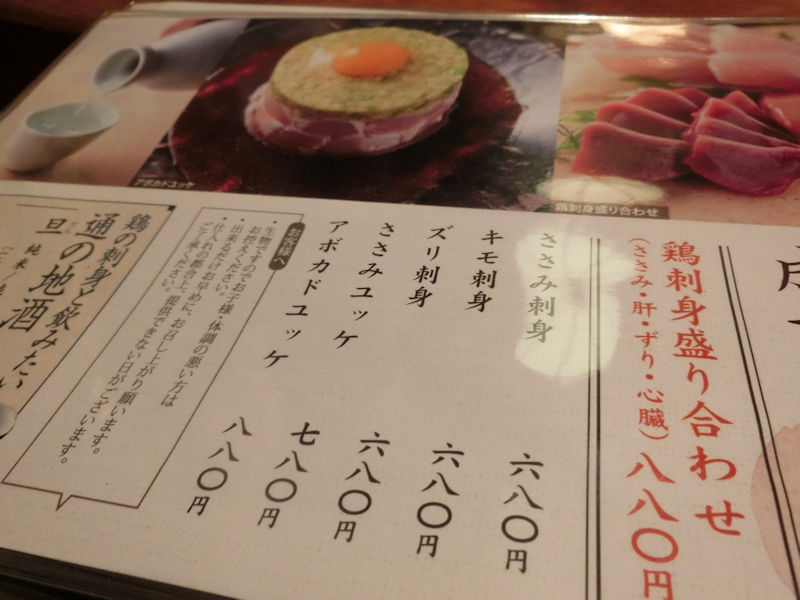 アボカドユッケ
鶏刺身盛り合わせ
鶏刺身盛り合わせ
(ささみ・肝・ずり・心臓)
八八〇円
ささみ刺身
六八〇円
キモ刺身
六八〇円
ズリ刺身
六八〇円
ささみユッケ
七八〇円
アボカドユッケ
八八〇円
お客様へ
・生物ですのでお子様・体調の悪い方は
お控えください。
・出来るだけお早めに、お召し上がり願います。
・仕入れの都合上、提供できない日がございます。
ご了承ください。
鶏の刺身と飲みたい
通の地酒
旦
純米